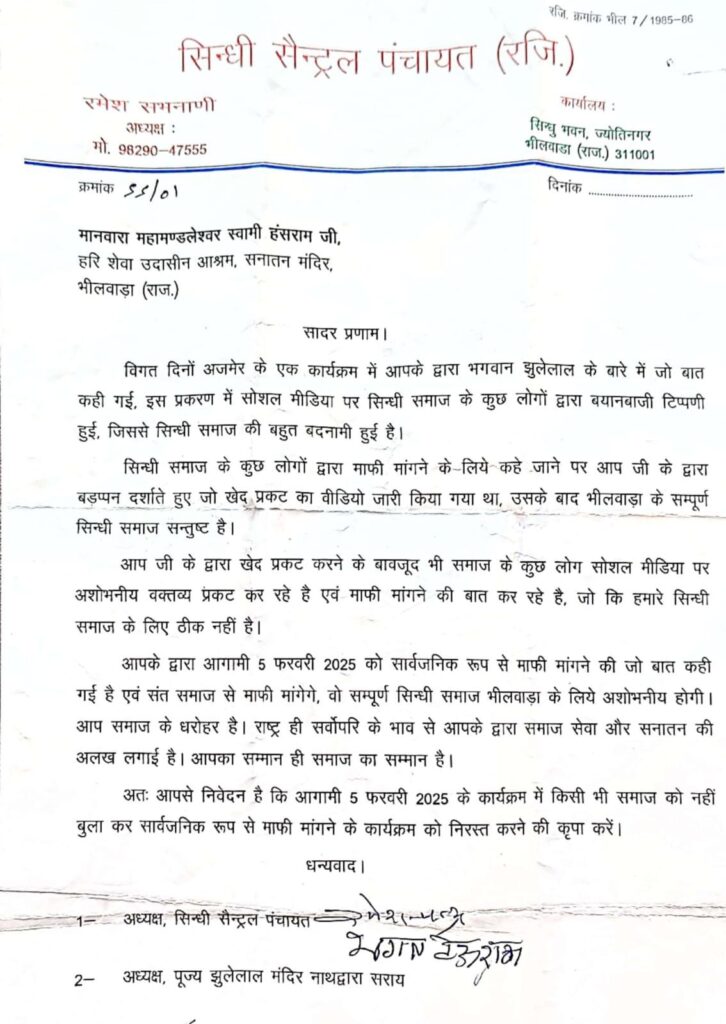 रजि. क्रमांक भील 7/1985-86
सिन्धी सैन्ट्रल पंचायत (रजि.)
रमेश सभनाणी
अध्यक्ष :
मो. 98290-47555
कार्यालय :
सिन्धु भवन, ज्योतिनगर
भीलवाडा (राज.) 311001
क्रमांक ऽऽ/01
दिनांक ..............................
मानवारा महामण्डलेश्वर स्वामी हंसराम जी,
हरि शेवा उदासीन आश्रम, सनातन मंदिर,
भीलवाड़ा (राज.)
सादर प्रणाम।
विगत दिनों अजमेर के एक कार्यक्रम में आपके द्वारा भगवान झुलेलाल के बारे में जो बात
कही गई, इस प्रकरण में सोशल मीडिया पर सिन्धी समाज के कुछ लोगों द्वारा बयानबाजी टिप्पणी
हुई, जिससे सिन्धी समाज की बहुत बदनामी हुई है।
सिन्धी समाज के कुछ लोगों द्वारा माफी मांगने के लिये कहे जाने पर आप जी के द्वारा
बड़प्पन दर्शाते हुए जो खेद प्रकट का वीडियो जारी किया गया था, उसके बाद भीलवाडा के सम्पूर्ण
सिन्धी समाज सन्तुष्ट है।
आप जी के द्वारा खेद प्रकट करने के बावजूद भी समाज के कुछ लोग सोशल मीडिया पर
अशोभनीय वक्तव्य प्रंकट कर रहे है एवं माफी मांगने की बात कर रहे है, जो कि हमारे सिन्धी
समाज के लिए ठीक नहीं है।
आपके द्वारा आगामी 5 फरवरी 2025 को सार्वजनिक रूप से माफी मांगने की जो बात कही
गई है एवं संत समाज से माफी मांगेगे, वो सम्पूर्ण सिन्धी समाज भीलवाडा के लिये अशोभनीय होगी।
आप समाज के धरोहर है। राष्ट्र ही सर्वोपरि के भाव से आपके द्वारा समाज सेवा और सनातन की
अलख लगाई है। आपका सम्मान ही समाज का सम्मान है।
अतः आपसे निवेदन है कि आगामी 5 फरवरी 2025 के कार्यक्रम में किसी भी समाज को नहीं
बुला कर सार्वजनिक रूप से माफी मांगने के कार्यक्रम को निरस्त करने की कृपा करें।
धन्यवाद।
1– अध्यक्ष, सिन्धी सैन्ट्रल पंचायत
2– अध्यक्ष, पूज्य झुलेलाल मंदिर नाथद्वारा सराय